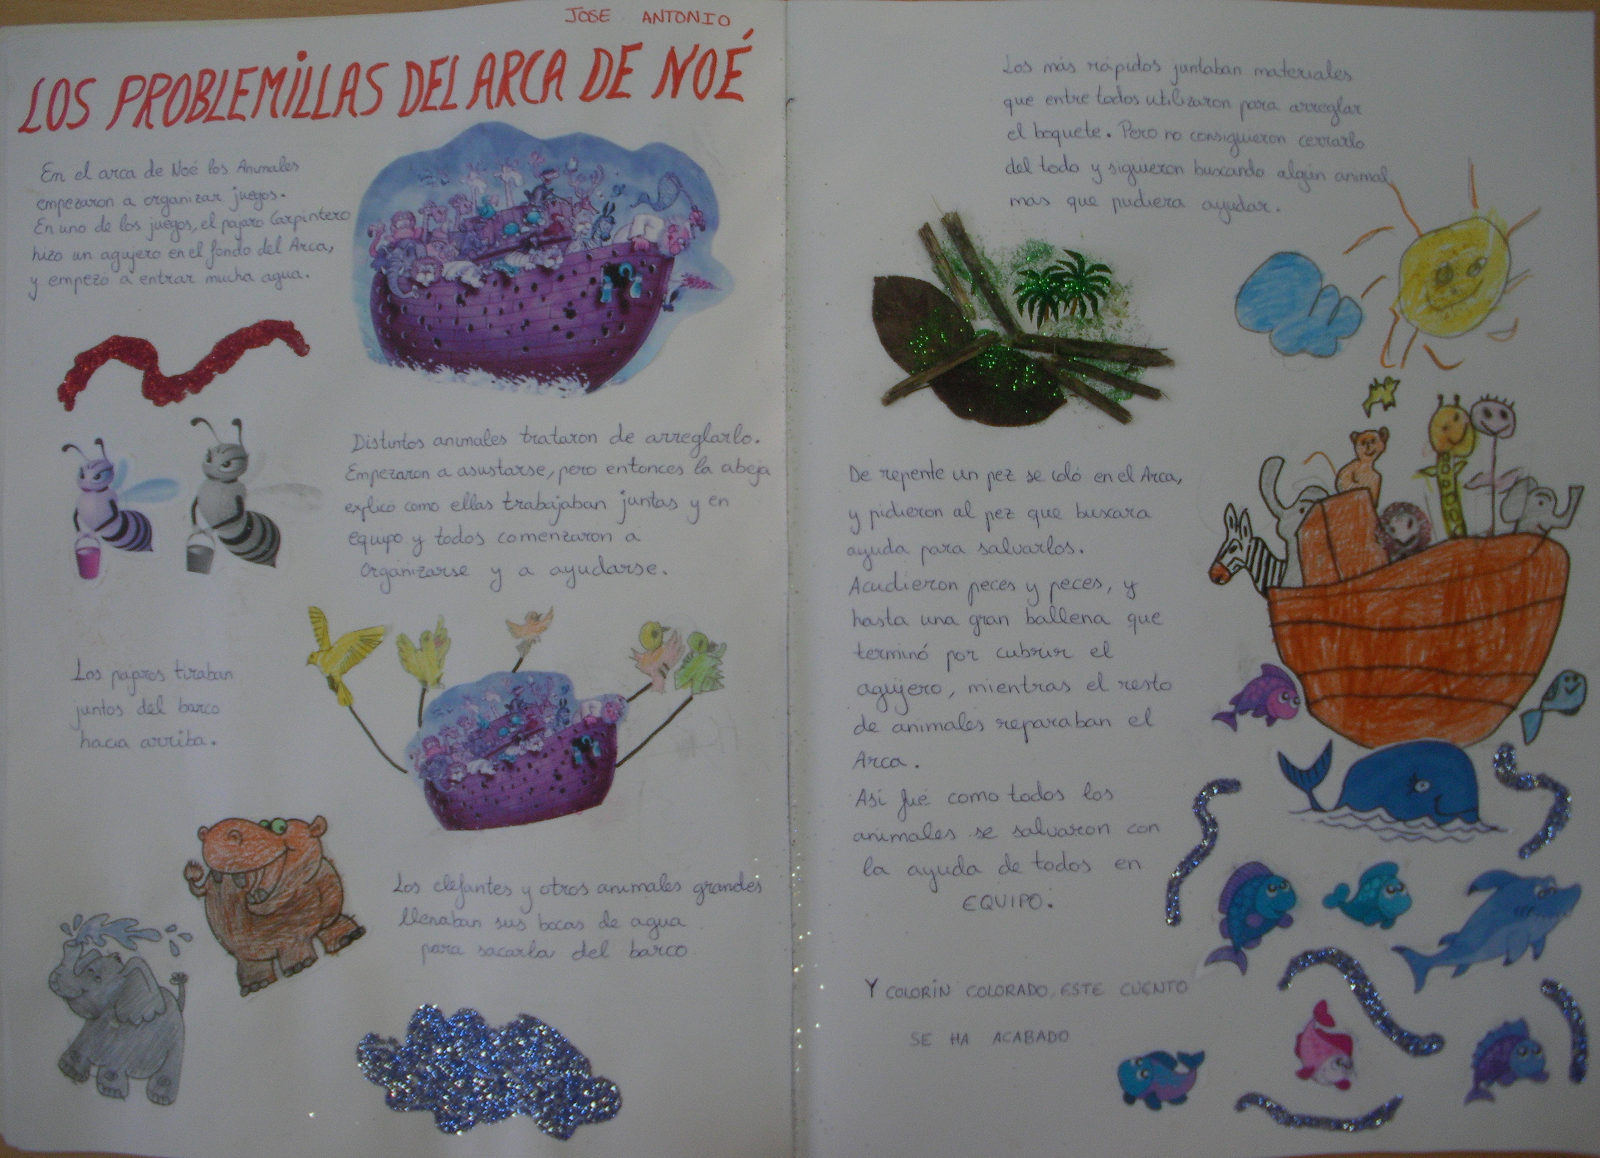 JOSE ANTONIO
LOS PROBLEMILLAS DEL ARCA DE NOÉ
En el arca de Noé los Animales
empezaron a organizar juegos.
En uno de los juegos, el pajaro Carpintero
hizo un agujero en el fondo del Arca,
y empezó a entrar mucha agua.
Distintos animales trataron de arreglarlo.
Empezaron a asustarse, pero entonces la abeja
explicó como ellas trabajaban juntas y en
equipo y todos comenzaron a
organizarse y a ayudarse.
Los pajaros tiraban
juntos del barco
hacia arriba.
Los elefantes y otros animales grandes
llenaban sus bocas de agua
para sacarla del barco
Los más rápidos juntaban materiales
que entre todos utilizaron para arreglar
el boquete. Pero no consiguieron cerrarlo
del todo y siguieron buscando algún animal
mas que pudiera ayudar.
De repente un pez se coló en el Arca,
y pidieron al pez que buscara
ayuda para salvarlos.
Acudieron peces y peces, y
hasta una gran ballena que
terminó por cubrir el
agujero, mientras el resto
de animales reparaban el
Arca.
Así fué como todos los
animales se salvaron con
la ayuda de todos en
EQUIPO.
Y COLORÍN COLORADO, ESTE CUENTO
SE HA ACABADO